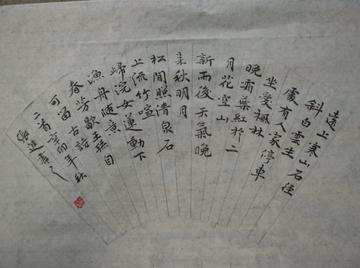 遠上寒山石徑
斜白雲生
處有人家停車
坐愛楓林
晚霜葉紅於二
月花空山
新雨後天氣晚
来秋明月
松間照清泉石
上流竹喧
歸浣女蓮動下
漁舟随意
春芳歇王孫自
可留古詩
二首年秋